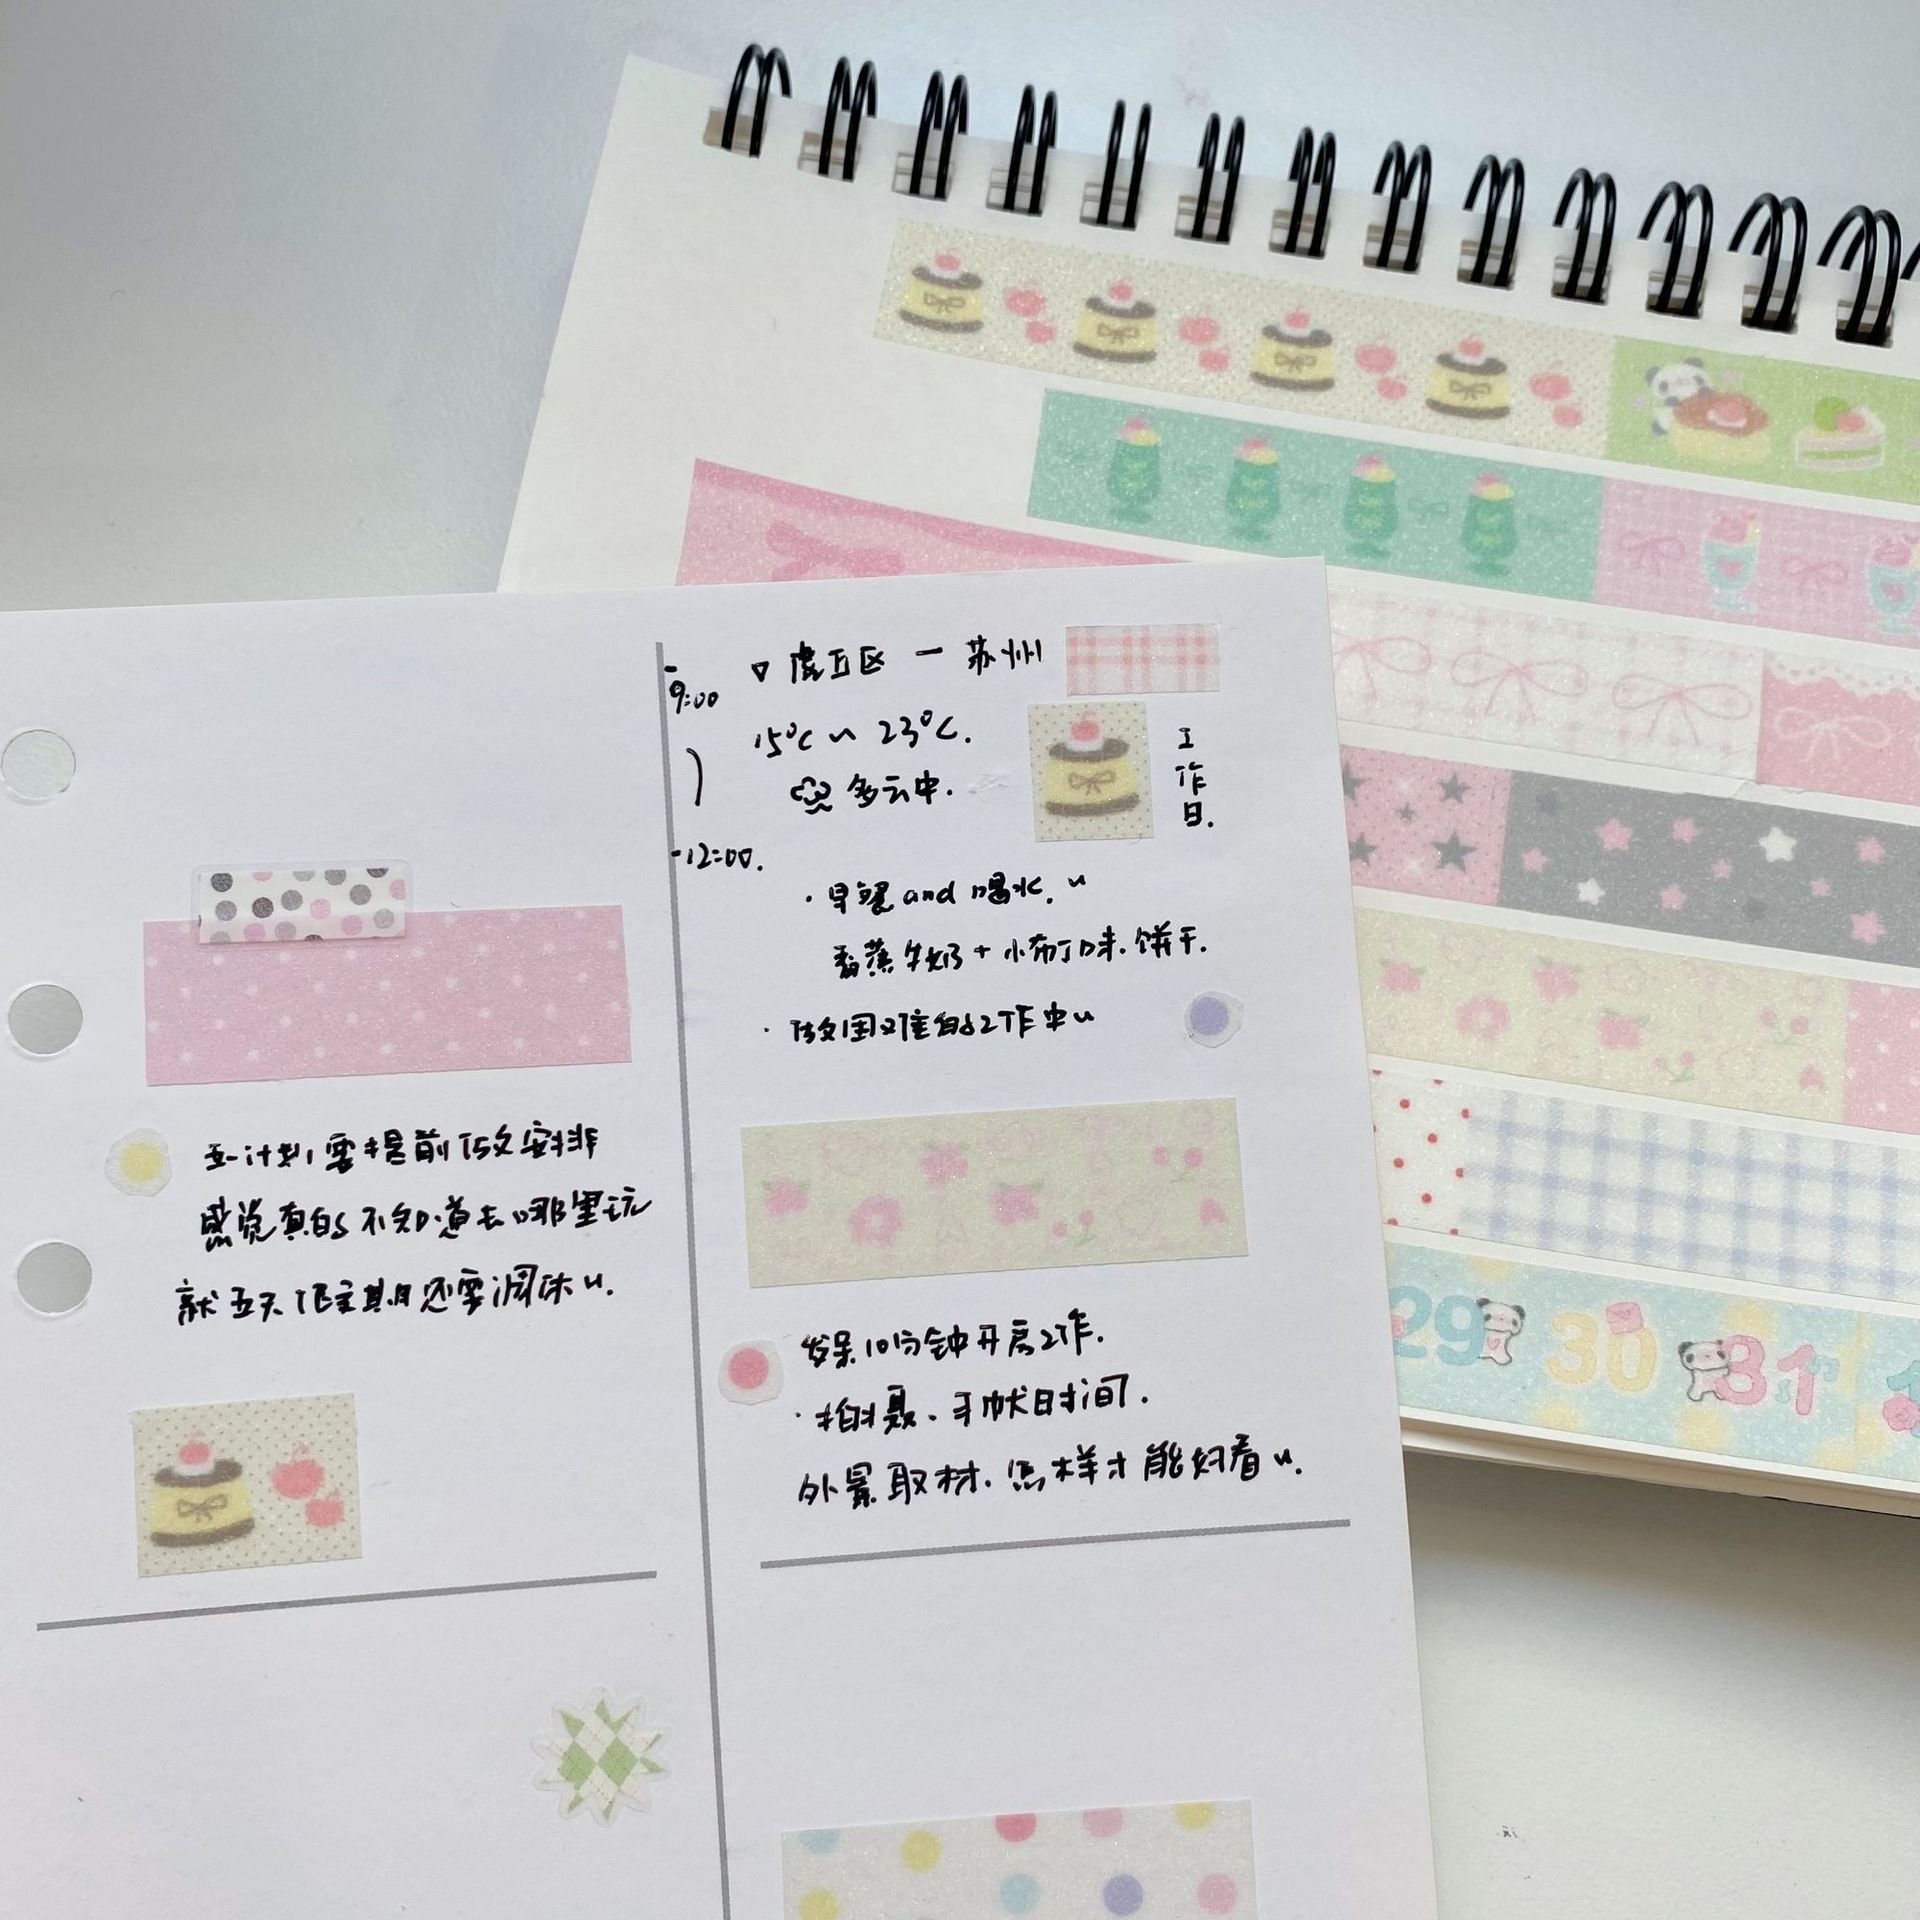 五一计划需提前做安排
感觉真的不知道去哪里玩
就五天假期还要调休
9:00
12:00.
虎丘区 — 苏州
15℃ ~ 23℃.
多云中.
工作日.
· 早餐 and 喝水.
牛奶 + 小布丁味.饼干.
· 做困难的工作中
发呆10分钟开启工作.
· 拍摄.手帐时间.
外景取材.怎样才能好看.
29 30 31